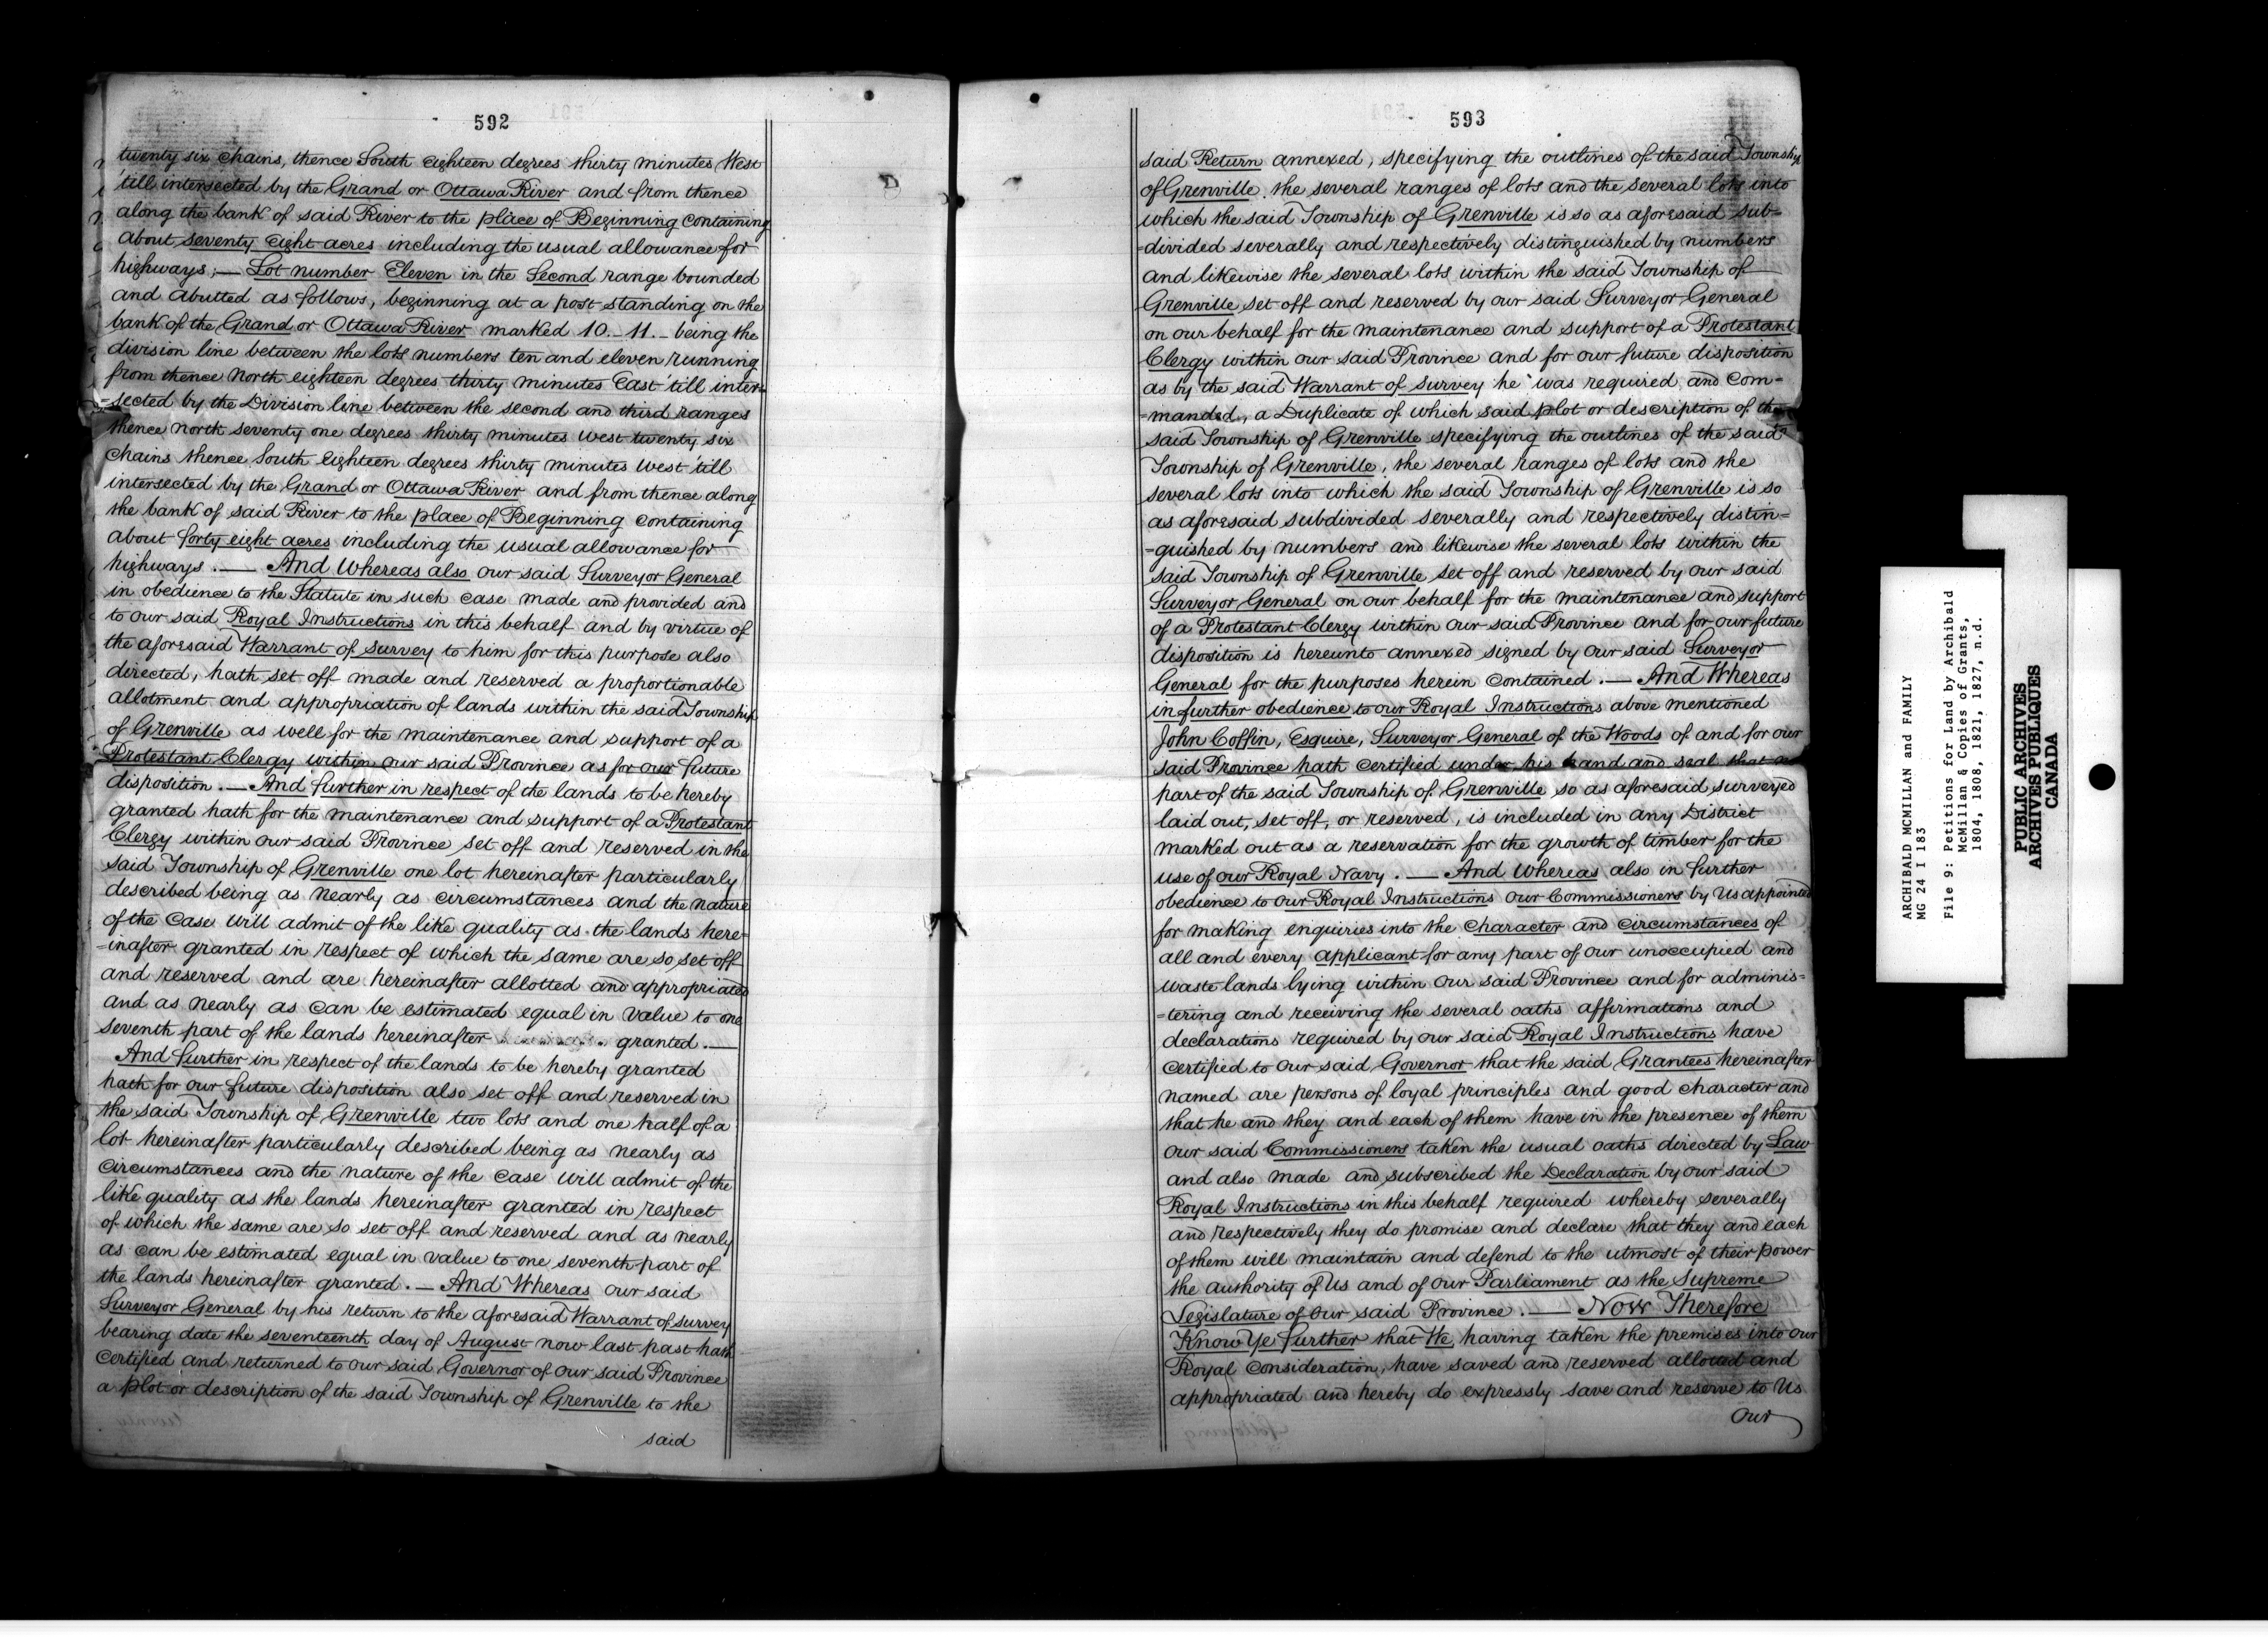 592
twenty six chains, thence South eighteen degrees thirty minutes West
'till intersected by the Grand or Ottawa River and from thence
along the bank of said River to the place of Beginning containing
about seventy eight acres including the usual allowance for
highways; — Lot number Eleven in the Second range bounded
and abutted as follows, beginning at a post standing on the
bank of the Grand or Ottawa River marked 10. – 11. – being the
division line between the lots numbers ten and eleven running
from thence North eighteen degrees thirty minutes East 'till inter=
=sected by the Division line between the second and third ranges
thence north seventy one degrees thirty minutes West twenty six
chains thence South Eighteen degrees thirty minutes West 'till
intersected by the Grand or Ottawa River and from thence along
the bank of said River to the place of Beginning containing
about forty eight acres including the usual allowance for
highways. — And Whereas also our said Surveyor General
in obedience to the Statute in such case made and provided and
to our said Royal Instructions in this behalf and by virtue of
the aforesaid Warrant of Survey to him for this purpose also
directed, hath set off made and reserved a proportionable
allotment and appropriation of lands within the said Township
of Grenville as well for the maintenance and support of a
Protestant Clergy within our said Province as for our future
disposition. — And further in respect of the lands to be hereby
granted hath for the maintenance and support of a Protestant
Clergy within our said Province set off and reserved in the
said Township of Grenville one lot hereinafter particularly
described being as nearly as circumstances and the nature
of the case will admit of the like quality as the lands here=
=inafter granted in respect of which the same are so set off
and reserved and are hereinafter allotted and appropriated
and as nearly as can be estimated equal in value to one
seventh part of the lands hereinafter granted. —
And further in respect of the lands to be hereby granted
hath for our future disposition also set off and reserved in
the said Township of Grenville two lots and one half of a
lot hereinafter particularly described being as nearly as
circumstances and the nature of the case will admit of the
like quality as the lands hereinafter granted in respect
of which the same are so set off and reserved and as nearly
as can be estimated equal in value to one seventh part of
the lands hereinafter granted. — And Whereas our said
Surveyor General by his return to the aforesaid Warrant of survey
bearing date the seventeenth day of August now last past hath
certified and returned to our said Governor of our said Province
a plot or description of the said Township of Grenville to the
said
593
said Return annexed, specifying the outlines of the said Township
of Grenville the several ranges of lots and the several lots into
which the said Township of Grenville is so as aforesaid sub=
=divided severally and respectively distinguished by numbers
and likewise the several lots within the said Township of
Grenville set off and reserved by our said Surveyor General
on our behalf for the maintenance and support of a Protestant
Clergy within our said Province and for our future disposition
as by the said Warrant of Survey he was required and com=
=manded, a Duplicate of which said plot or description of the
said Township of Grenville specifying the outlines of the said
Township of Grenville, the several ranges of lots and the
several lots into which the said Township of Grenville is so
as aforesaid subdivided severally and respectively distin=
=guished by numbers and likewise the several lots within the
said Township of Grenville set off and reserved by our said
Surveyor General on our behalf for the maintenance and support
of a Protestant Clergy within our said Province and for our future
disposition is hereunto annexed signed by our said Surveyor
General for the purposes herein contained. — And Whereas
in further obedience to our Royal Instructions above mentioned
John Coffin, Esquire, Surveyor General of the Woods of and for our
said Province hath certified under his hand and seal that no
part of the said Township of Grenville so as aforesaid surveyed
laid out, set off, or reserved, is included in any District
marked out as a reservation for the growth of timber for the
use of our Royal Navy. — And Whereas also in further
obedience to our Royal Instructions our Commissioners by Us appointed
for making enquiries into the character and circumstances of
all and every applicant for any part of our unoccupied and
waste lands lying within our said Province and for adminis=
=tering and receiving the several oaths affirmations and
declarations required by our said Royal Instructions have
certified to our said Governor that the said Grantees hereinafter
named are persons of loyal principles and good character and
that he and they and each of them have in the presence of them
our said Commissioners taken the usual oaths directed by Law
and also made and subscribed the Declaration by our said
Royal Instructions in this behalf required whereby severally
and respectively they do promise and declare that they and each
of them will maintain and defend to the utmost of their power
the authority of Us and of our Parliament as the Supreme
Legislature of our said Province. — Now Therefore
Know Ye further that We, having taken the premises into our
Royal consideration, have saved and reserved allotted and
appropriated and hereby do expressly save and reserve to Us
Our
ARCHIBALD MCMILLAN and FAMILY
MG 24 I 183
File 9: Petitions for Land by Archibald
McMillan & Copies of Grants,
1804, 1808, 1821, 1827, n.d.
PUBLIC ARCHIVES
ARCHIVES PUBLIQUES
CANADA